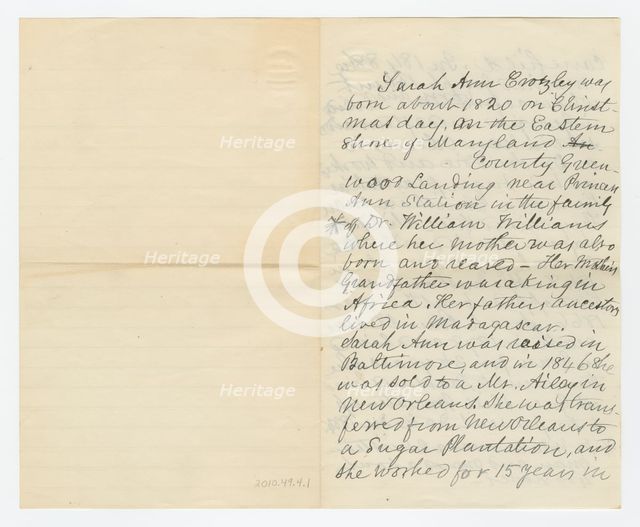 Sarah Ann Crozley was
born about 1820 on Christ-
mas day, on the Eastern
shore of Maryland An
County Green-
wood Landing near Princess
Ann Station in the family
* of Dr. William Williams
where her mother was also
born and reared – Her Mothers
Grandfather was a king in
Africa. Her fathers ancestors
lived in Madagascar.
Sarah Ann was raised in
Baltimore, and in 1846 she
was sold to a Mr. Ailey in
New Orleans. She was trans-
ferred from New Orleans to
a Sugar Plantation, and
she worked for 15 years in
2010.49.4.1
Heritage
Heritage
Heritage
Heritage
Heritage
Heritage